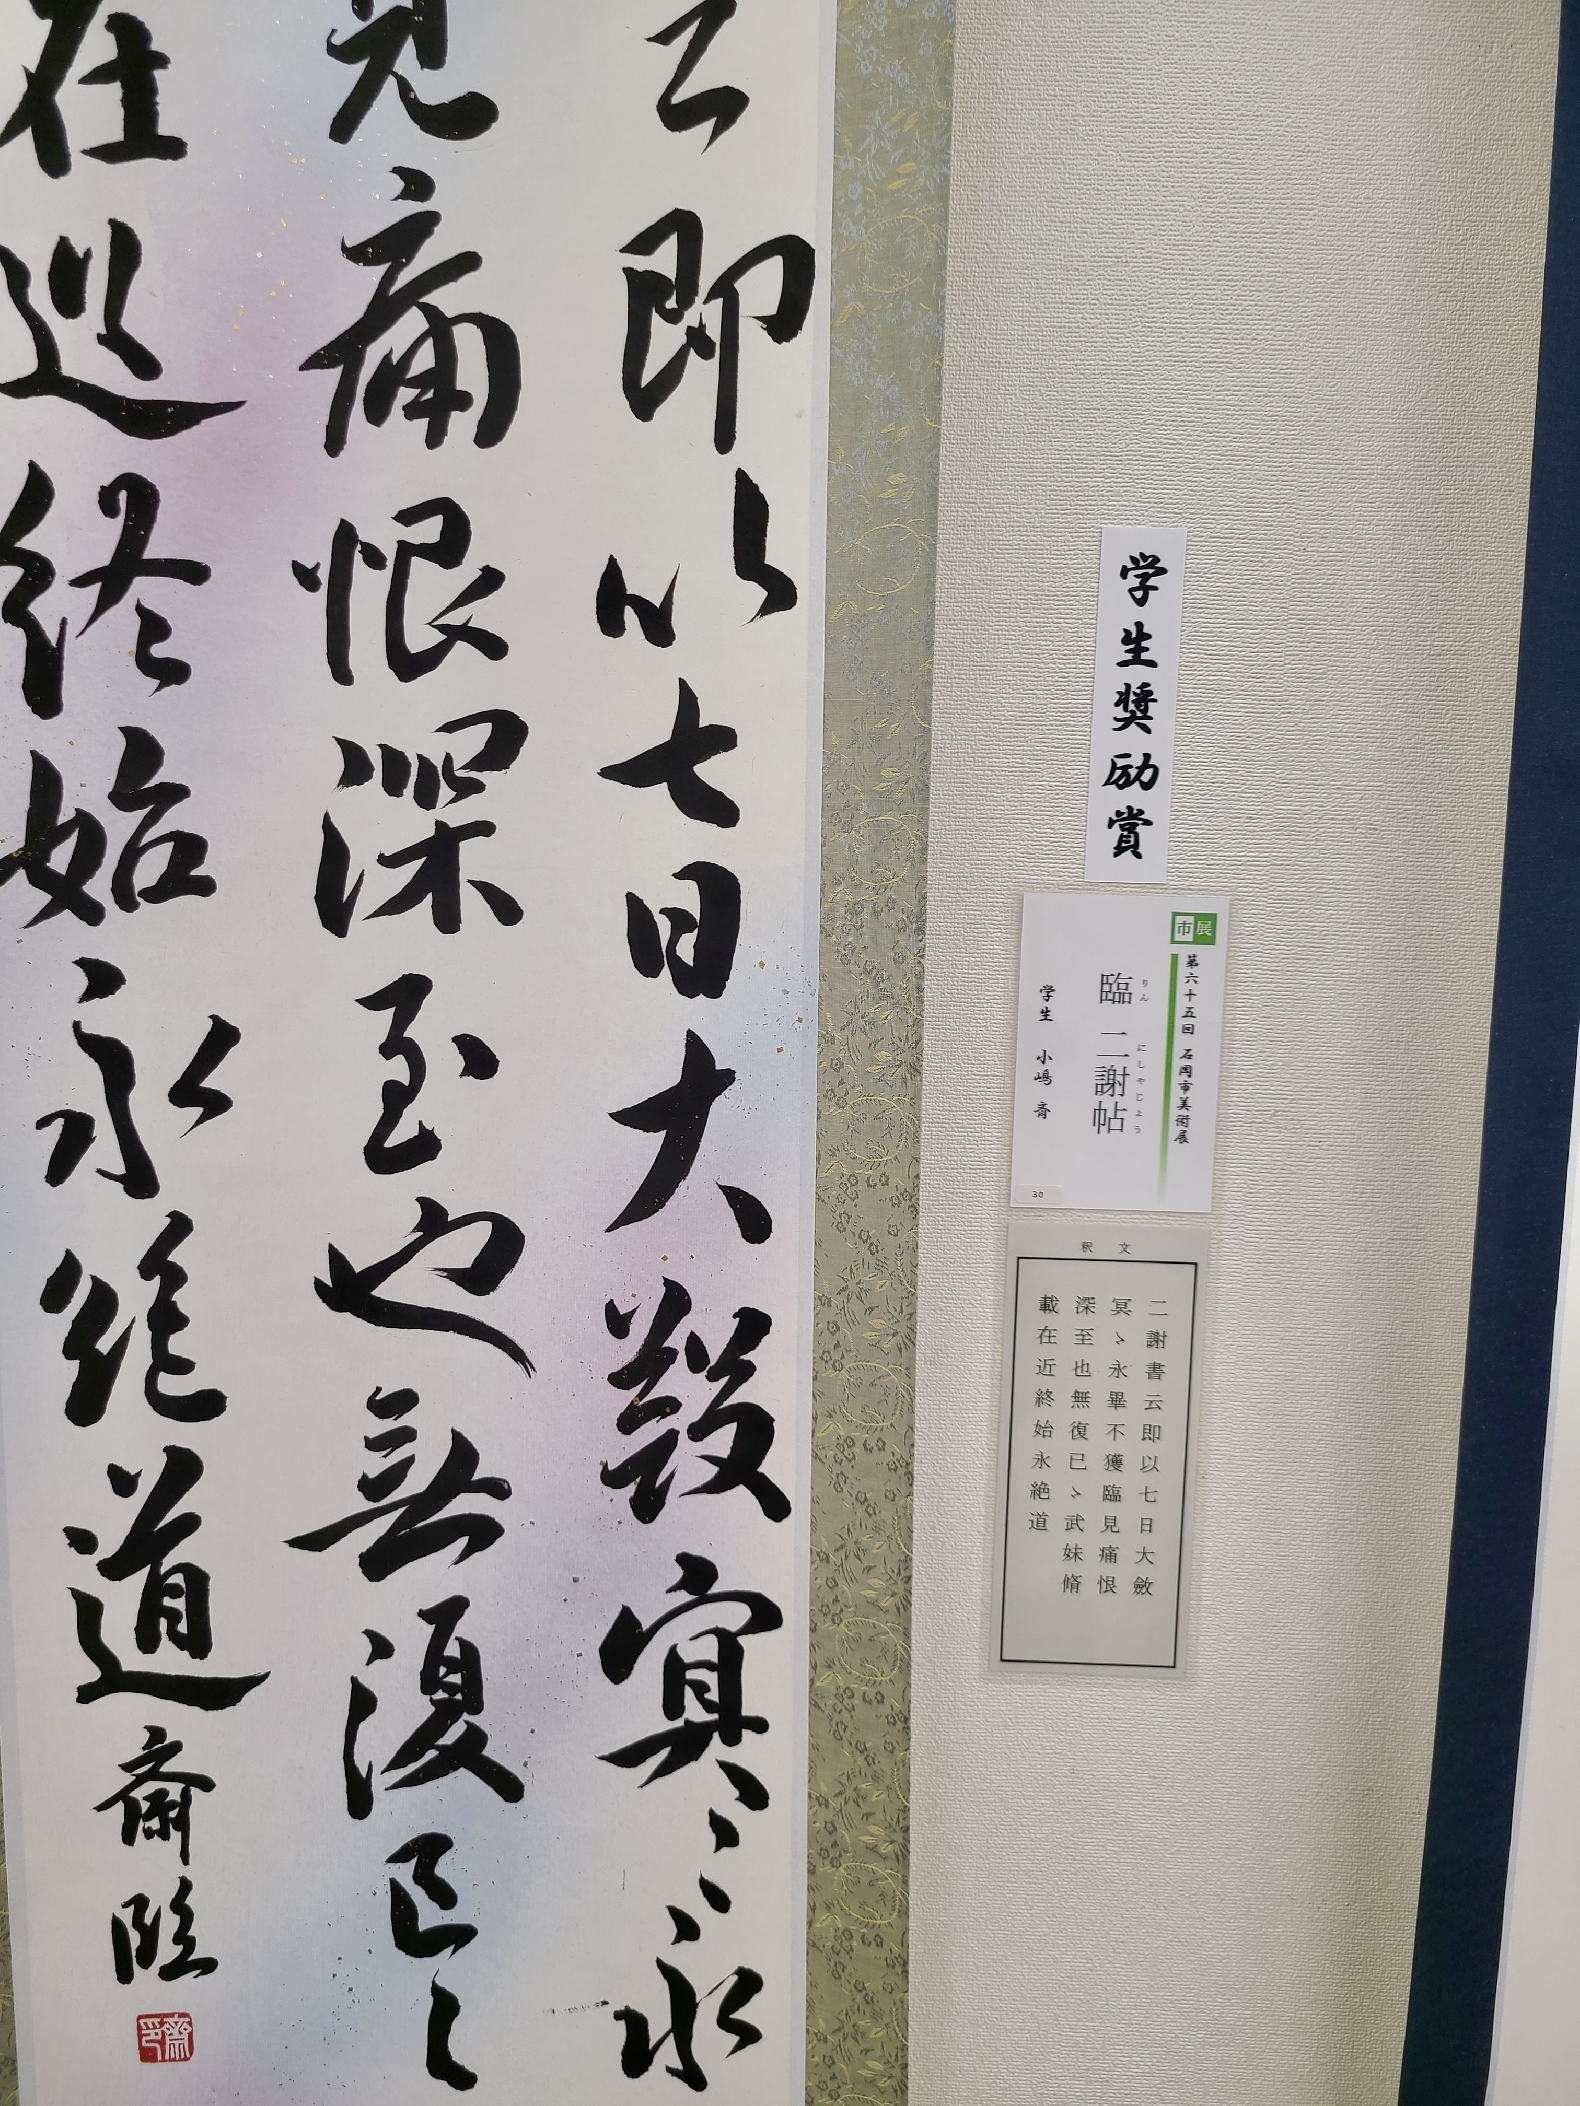 云即以七日大斂冥〻永
見痛恨深至也無復已〻
在近終始永絶道
斎臨
学生奨励賞
市展
第六十五回 石岡市美術展
臨 二謝帖
りん にしゃじょう
学生 小嶋 斎
30
釈文
二謝書云即以七日大斂
冥〻永畢不獲臨見痛恨
深至也無復已〻武妹脩
載在近終始永絶道